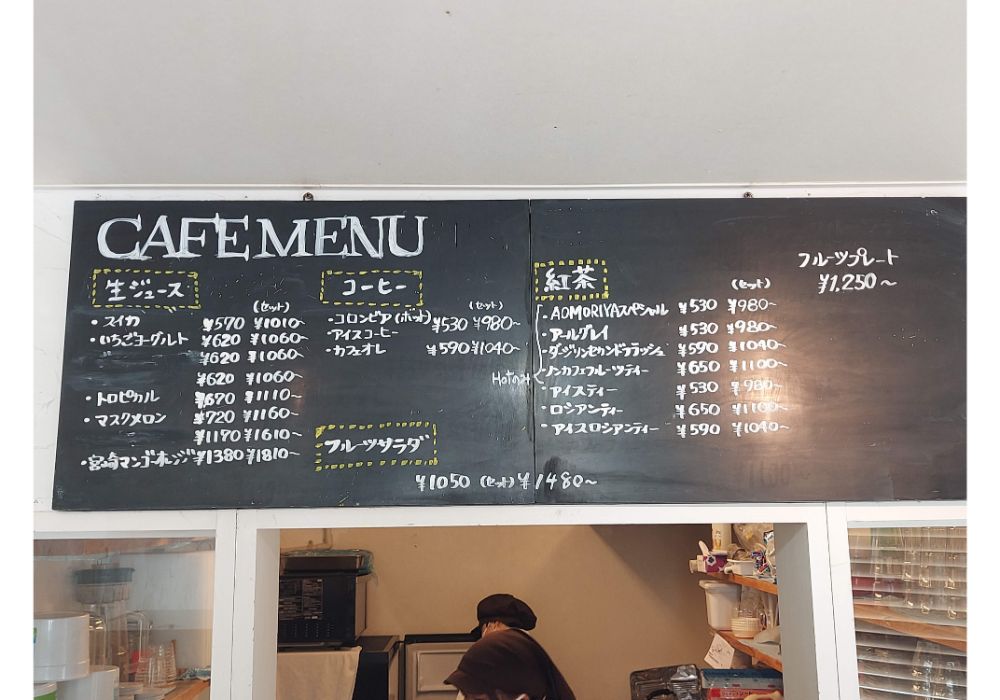 CAFE MENU
生ジュース
(セット)
・スイカ ¥570 ¥1010~
・いちごヨーグルト ¥620 ¥1060~
¥620 ¥1060~
¥620 ¥1060~
・トロピカル ¥670 ¥1110~
・マスクメロン ¥720 ¥1160~
¥1170 ¥1610~
・宮崎マンゴーオレンジ ¥1380 ¥1810~
コーヒー
(セット)
・コロンビア(ホット) ¥530 ¥980~
・アイスコーヒー
・カフェオレ ¥590 ¥1040~
フルーツサラダ
¥1050 (セット) ¥1480~
紅茶
(セット)
・AOMORIYAスペシャル ¥530 ¥980~
・アールグレイ ¥530 ¥980~
・ダージリンセカンドフラッシュ ¥590 ¥1040~
・ノンカフェフルーツティー ¥650 ¥1100~
HOTのみ
・アイスティー ¥530 ¥980~
・ロシアンティー ¥650 ¥1100~
・アイスロシアンティー ¥590 ¥1040~
フルーツプレート
¥1,250~